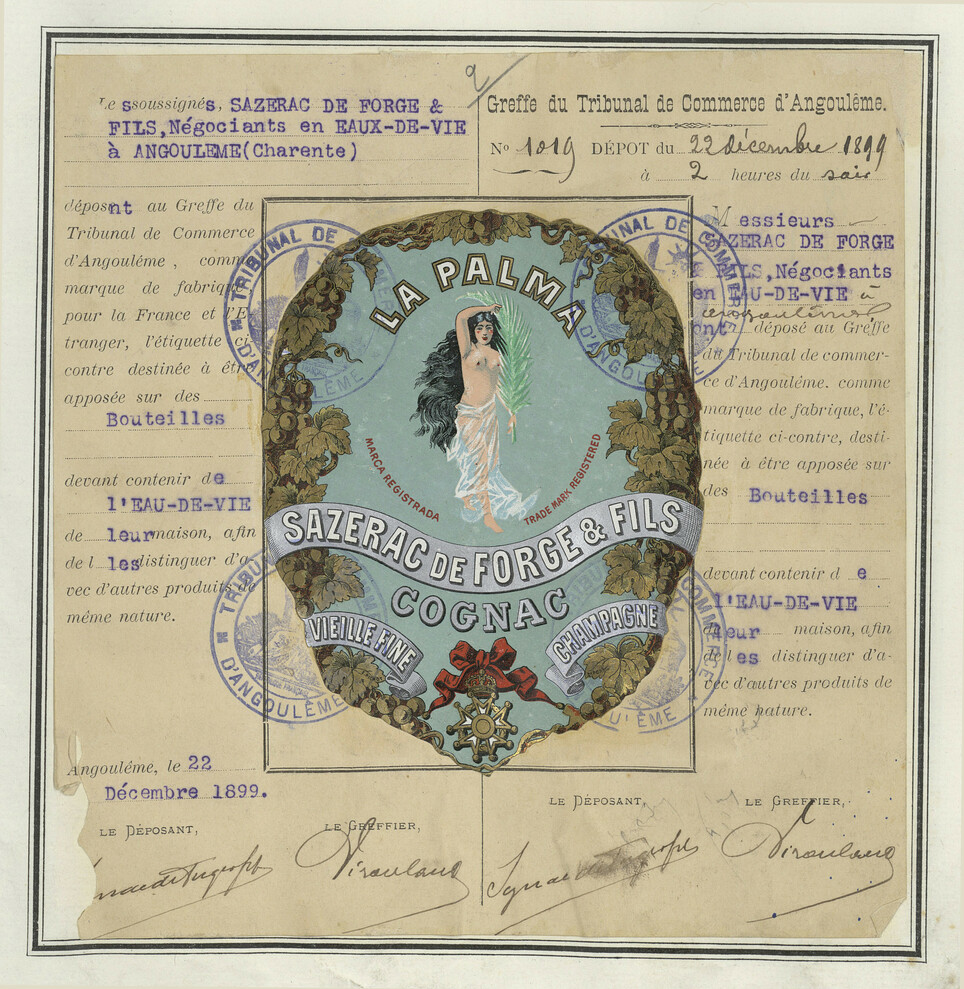 Le ssoussignés, SAZERAC DE FORGE &
FILS, Négociants en EAUX-DE-VIE
à ANGOULEME (Charente)
déposent au Greffe du
Tribunal de Commerce
d'Angoulême, comme
marque de fabrique
pour la France et l'E-
tranger, l'étiquette ci-
contre destinée à être
apposée sur des
Bouteilles
devant contenir de
l'EAU-DE-VIE
de leur maison, afin
de l les distinguer d'a-
vec d'autres produits de
même nature.
Angoulême, le 22
Décembre 1899.
LE DÉPOSANT,
LE GREFFIER,
Greffe du Tribunal de Commerce d'Angoulême.
No 1019 DÉPOT du 22 décembre 1899
à 2 heures du soir
Messieurs
SAZERAC DE FORGE
& FILS, Négociants
en EAU-DE-VIE à
Angoulême
ont déposé au Greffe
du Tribunal de commer-
ce d'Angoulême. comme
marque de fabrique, l'é-
tiquette ci-contre, desti-
née à être apposée sur
des Bouteilles
devant contenir d e
l'EAU-DE-VIE
de leur maison, afin
de l es distinguer d'a-
vec d'autres produits de
même nature.
LE DÉPOSANT,
LE GREFFIER,
LA PALMA
MARCA REGISTRADA
TRADE MARK REGISTERED
SAZERAC DE FORGE & FILS
COGNAC
VIEILLE FINE
CHAMPAGNE
TRIBUNAL DE COMMERCE
D'ANGOULÊME